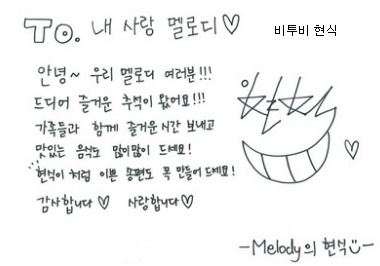 To. 내 사랑 멜로디♡
비투비 현식
안녕~ 우리 멜로디 여러분!!!
드디어 즐거운 추석이 왔어요!!!
가족들과 함께 즐거운 시간 보내고
맛있는 음식도 많이많이 드세요!
현식이 처럼 이쁜 송편도 꼭 만들어 드세요!
감사합니다♡ 사랑합니다♡
-Melody의 현식-